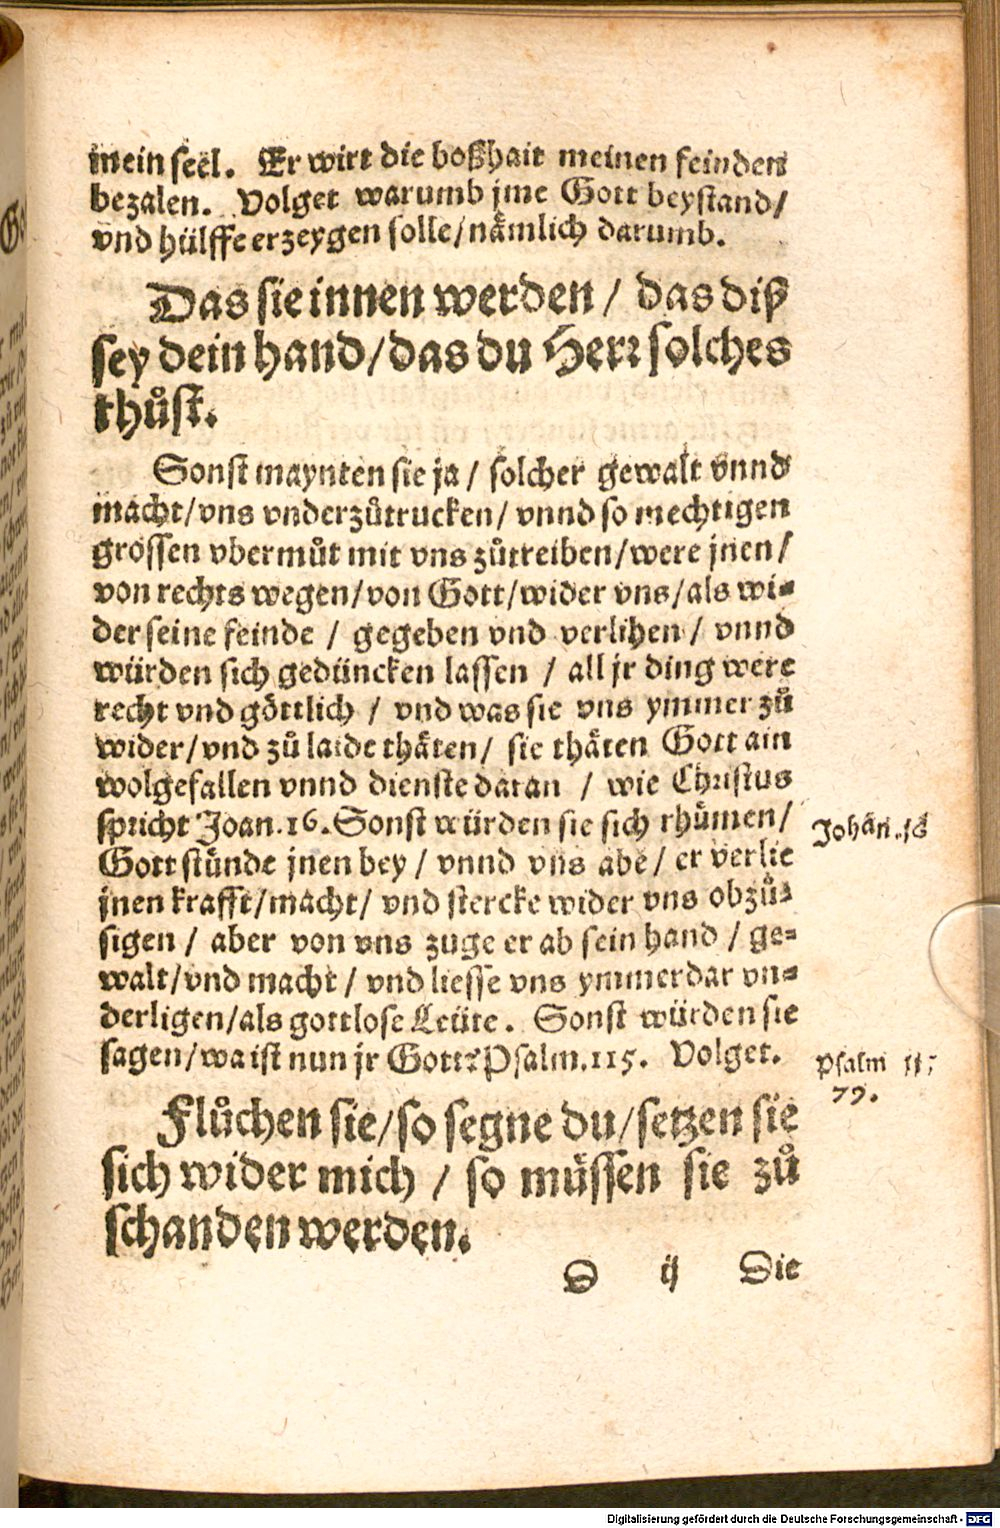 mein seel. Er wirt die boßhait meinen feinden
bezalen. Volget warumb jme Gott beystand/
vnd hülffe erzeygen solle/nämlich darumb.
Das sie innen werden / das diß
sey dein hand/das du Herr solches
thůst.
Sonst maynten sie ja / solcher gewalt vnnd
macht/vns vnderzůtrucken/ vnnd so mechtigen
grossen vbermůt mit vns zůtreiben/were jnen/
von rechts wegen/von Gott/wider vns/als wi=
der seine feinde / gegeben vnd verlihen / vnnd
würden sich gedüncken lassen / all jr ding were
recht vnd göttlich / vnd was sie vns ymmer zů
wider/vnd zů laide thäten/ sie thäten Gott ain
wolgefallen vnnd dienste daran / wie Christus
spricht Joan.16. Sonst würden sie sich rhümen/
Gott stünde jnen bey / vnnd vns abe/ er verlie
jnen krafft/macht/ vnd stercke wider vns obzů=
sigen / aber von vns zuge er ab sein hand / ge=
walt/vnd macht / vnd liesse vns ymmerdar vn=
derligen/als gottlose Leüte. Sonst würden sie
sagen/wa ist nun jr Gott? Psalm.115. Volget.
Flůchen sie/so segne du/setzen sie
sich wider mich / so müssen sie zů
schanden werden.
D ij Die
Johän.16
Psalm 115
79.
Digitalisierung gefördert durch die Deutsche Forschungsgemeinschaft - DFG